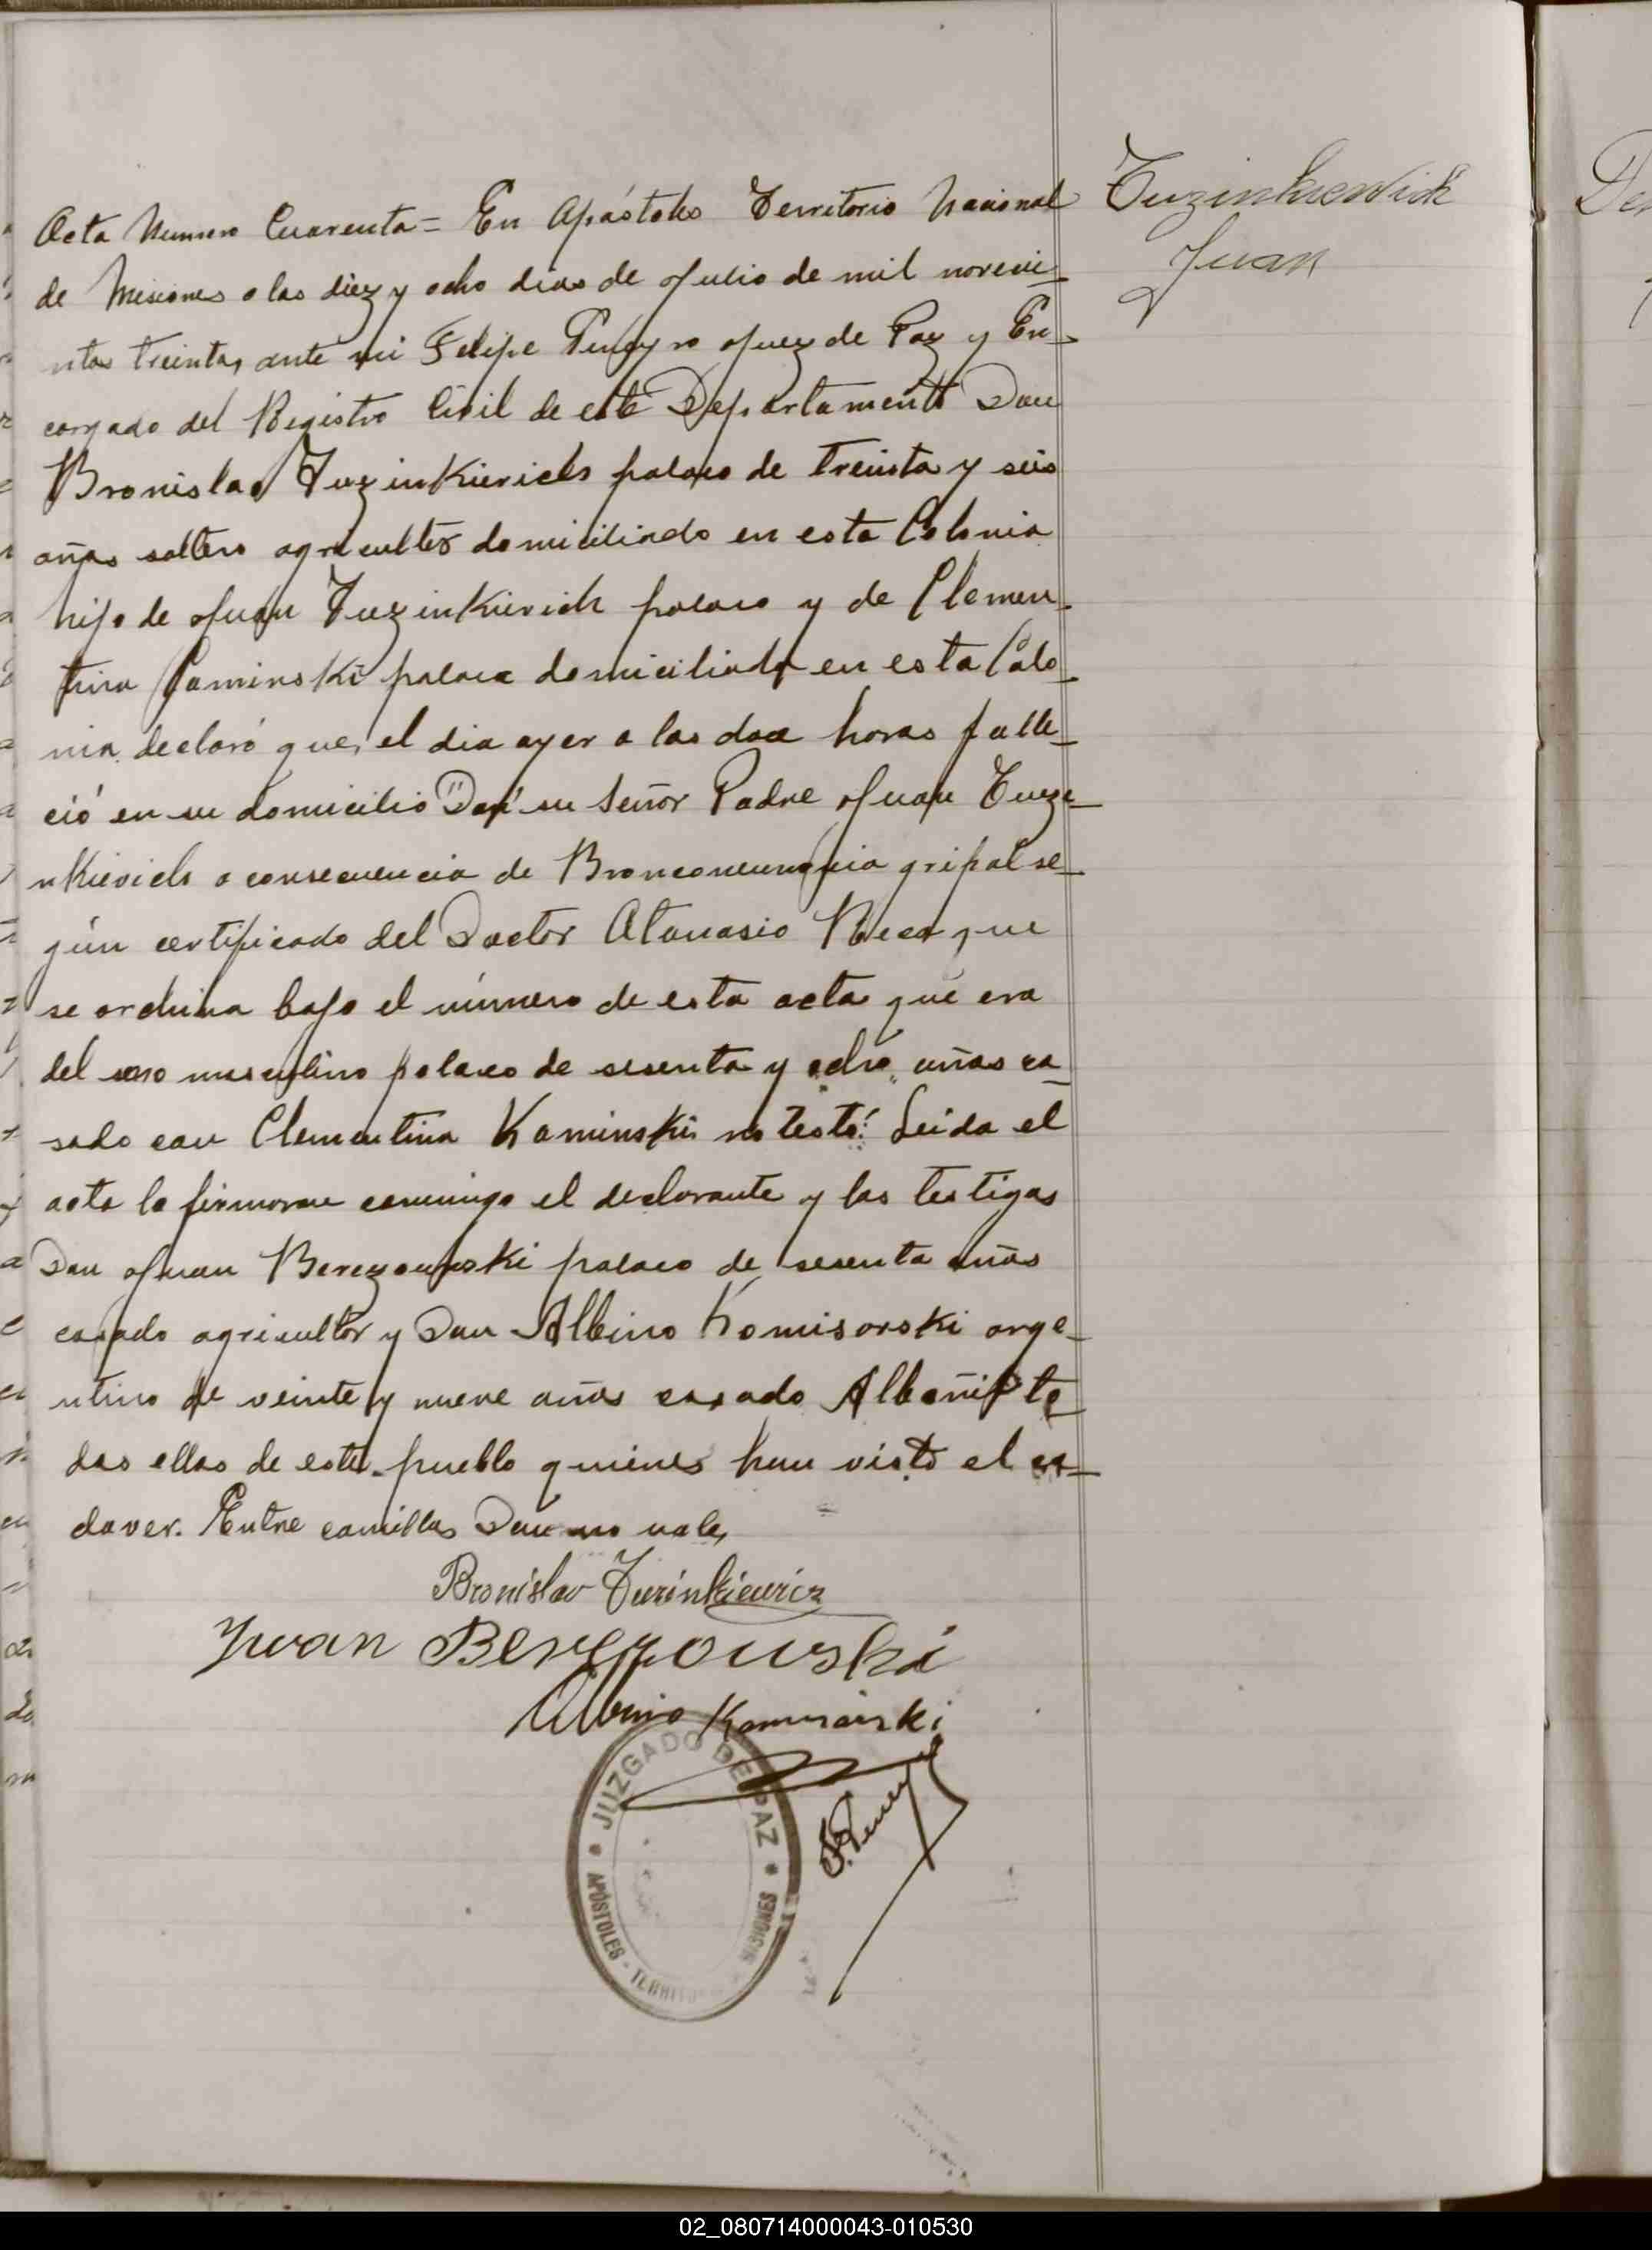 Acta Numero Cuarenta = En Apóstoles Territorio Nacional
de Misiones a los diez y ocho dias de Julio de mil novecie-
ntos treinta, ante mi Felipe Juez de Paz y En-
cargado del Registro Civil de este Departamento Don
Bronislao Tuzinkievich polaco de treinta y seis
años soltero agricultor domiciliado en esta Colonia
hijo de Juan Tuzinkievich polaco y de Clemen-
tina Caminski polaca domiciliada en esta Colo-
nia, declaró que, el dia ayer a las doce horas falle-
ció en su domicilio "Don" su Señor Padre Juan Tuzi-
nkievich a consecuencia de Bronconeumonia gripal se-
gún certificado del Doctor Atanasio que
se archiva bajo el número de esta acta que era
del sexo masculino polaco de sesenta y ocho años ca-
sado con Clementina Kaminski no testó. Leida el
acta la firmaron conmigo el declarante y los testigos
Don Juan Berezowski polaco de sesenta años
casado agricultor y Don Albino Komisarski arge-
ntino de veinte y nueve años casado Albañil to-
dos ellos de este pueblo quienes han visto el ca-
daver. Entre comillas Don no vale,
Bronislav Tuzinkiewicz
Juan Berezowski
Albino Komisarski
JUZGADO DE PAZ
APÓSTOLES - TERRITO MISIONES
Tuzinkiewich
Juan
02_080714000043-010530